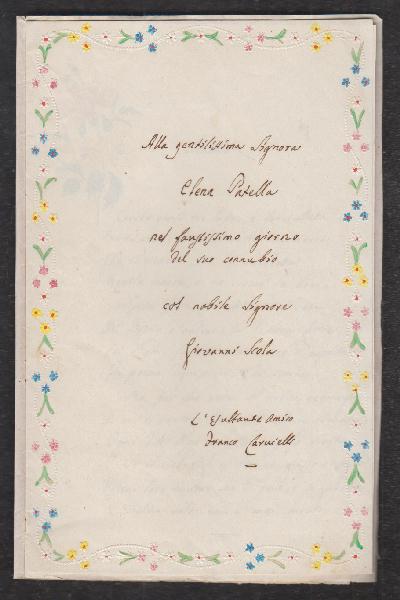 Alla gentilissima Signora
Elena Patella
nel faustissimo giorno
del suo connubio
col nobile Signore
Giovanni Scola
L'esultante Amico
Franco